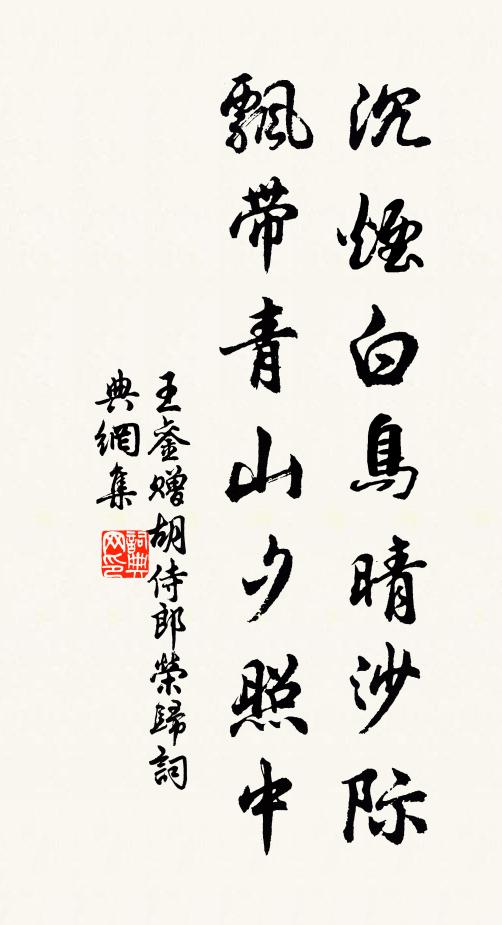 沉煙白鳥晴沙际
飄帶青山夕照中
王崟赠胡侍郎榮歸詞
典網集
詞典网印